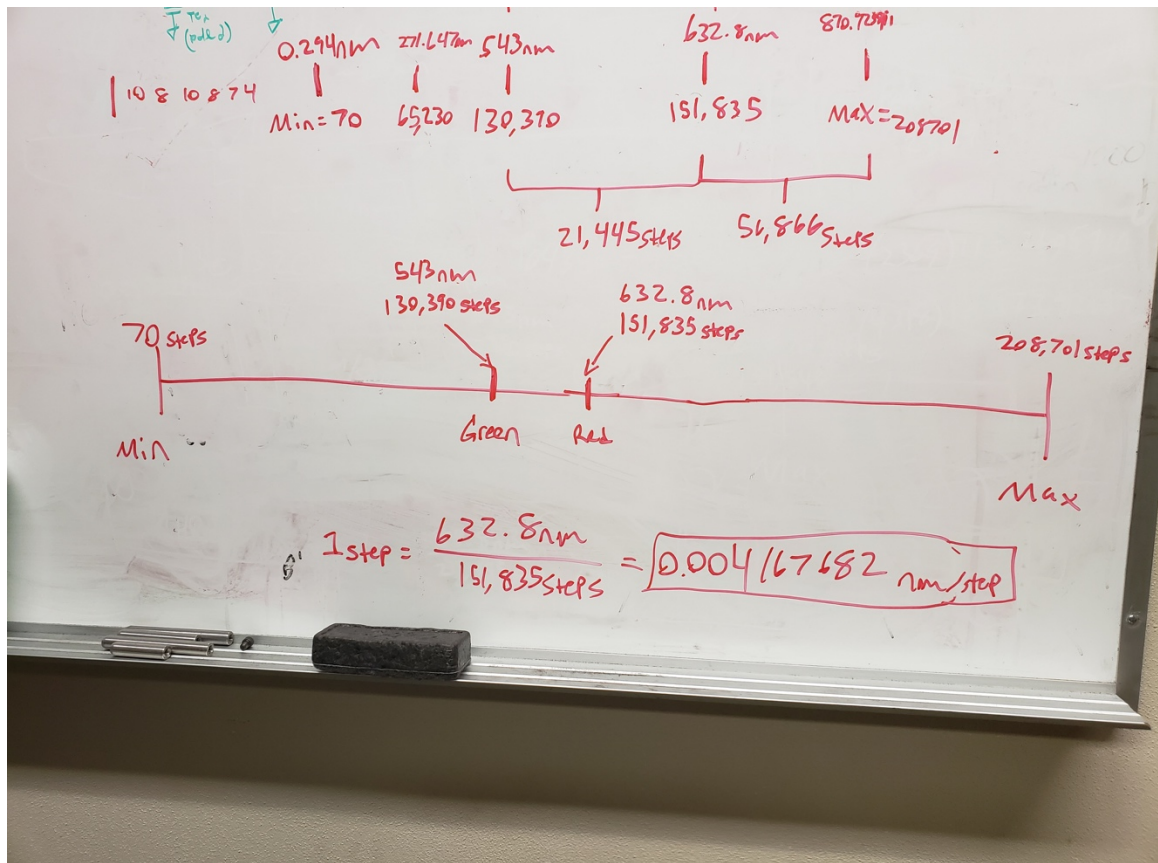 (pole 2)
0.294nm 271.647nm 543nm 632.8nm
10 8 10 8 7 4
Min=70 65,230 130,390 151,835 Max=208701
21,445 steps 56,866 steps
543nm
130,390 steps
632.8nm
151,835 steps
70 steps
208,701 steps
Green Red
Min
Max
1 step = 632.8nm = 0.004167682 nm/step
151,835 steps